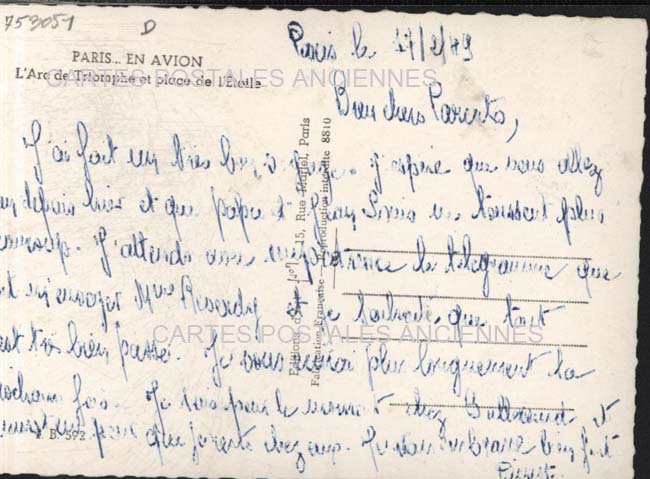 753051
D
PARIS... EN AVION
L'Arc de Triomphe et place de l'Étoile
CARTES POSTALES ANCIENNES
Paris le 17/2/49
Bien chers Parents,
J'ai fait un très bon voyage. J'espère que vous allez
depuis hier et que papa et Jean Louis ne toussent plus
beaucoup. J'attends avec impatience le télégramme que
m'envoyer Mme et je souhaite que tout
est très bien passé. Je vous plus longuement la
prochaine fois. Je suis pour le moment chez et
pour que je reste chez eux. Je vous embrasse bien fort
Pierrot.
Editions d'Art 15, Rue Martel, Paris
Fabrication Française Reproduction interdite 8810
CARTES POSTALES ANCIENNES
P. B. 592